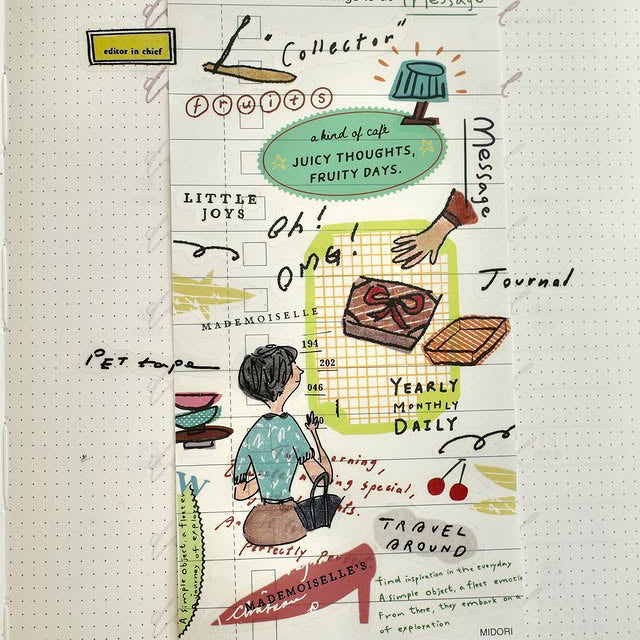 Message
editor in chief
"Collector"
fruits
a kind of café
JUICY THOUGHTS,
FRUITY DAYS.
Message
LITTLE
JOYS
Oh!
OMG!
Journal
MADEMOISELLE
194
PET tape
202
046
YEARLY
MONTHLY
DAILY
orning,
ng special,
TRAVEL
AROUND
Perfectly
MADEMOISELLE'S
Château
find inspiration in the everyday
A simple object, a fleet emotio
From there, they embark on a
of exploration
A simple object, a fleet
journey of explor
MIDORI